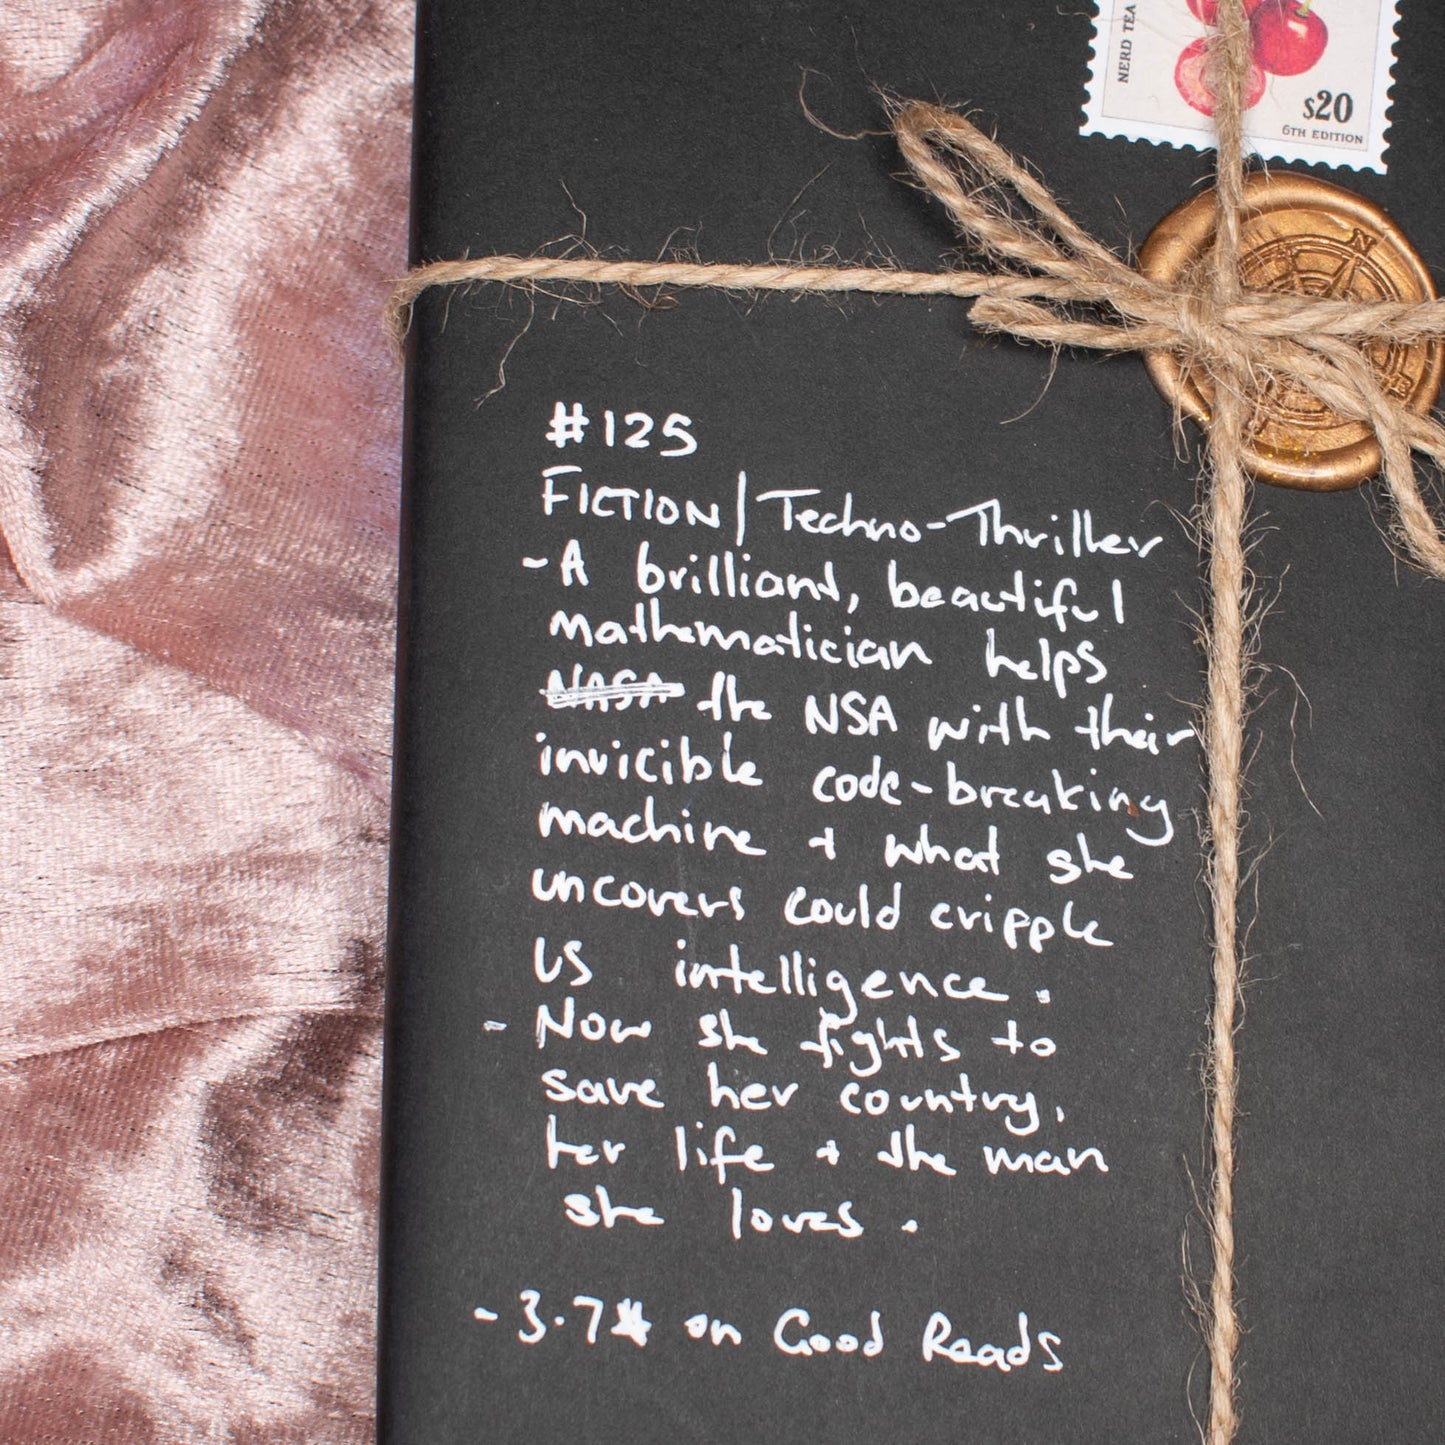 NERD TEA
$20
6TH EDITION
N
#125
FICTION/Techno-Thriller
- A brilliant, beautiful
mathematician helps
NASA the NSA with their
invicible code-breaking
machine + what she
uncovers could cripple
US intelligence.
- Now she fights to
save her country,
her life + the man
she loves.
- 3.7★ on Good Reads